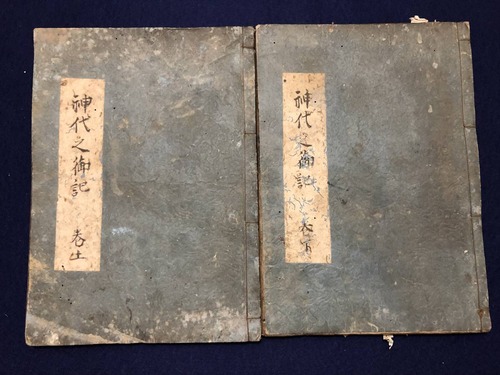 神代之御記
神代之御記 巻上